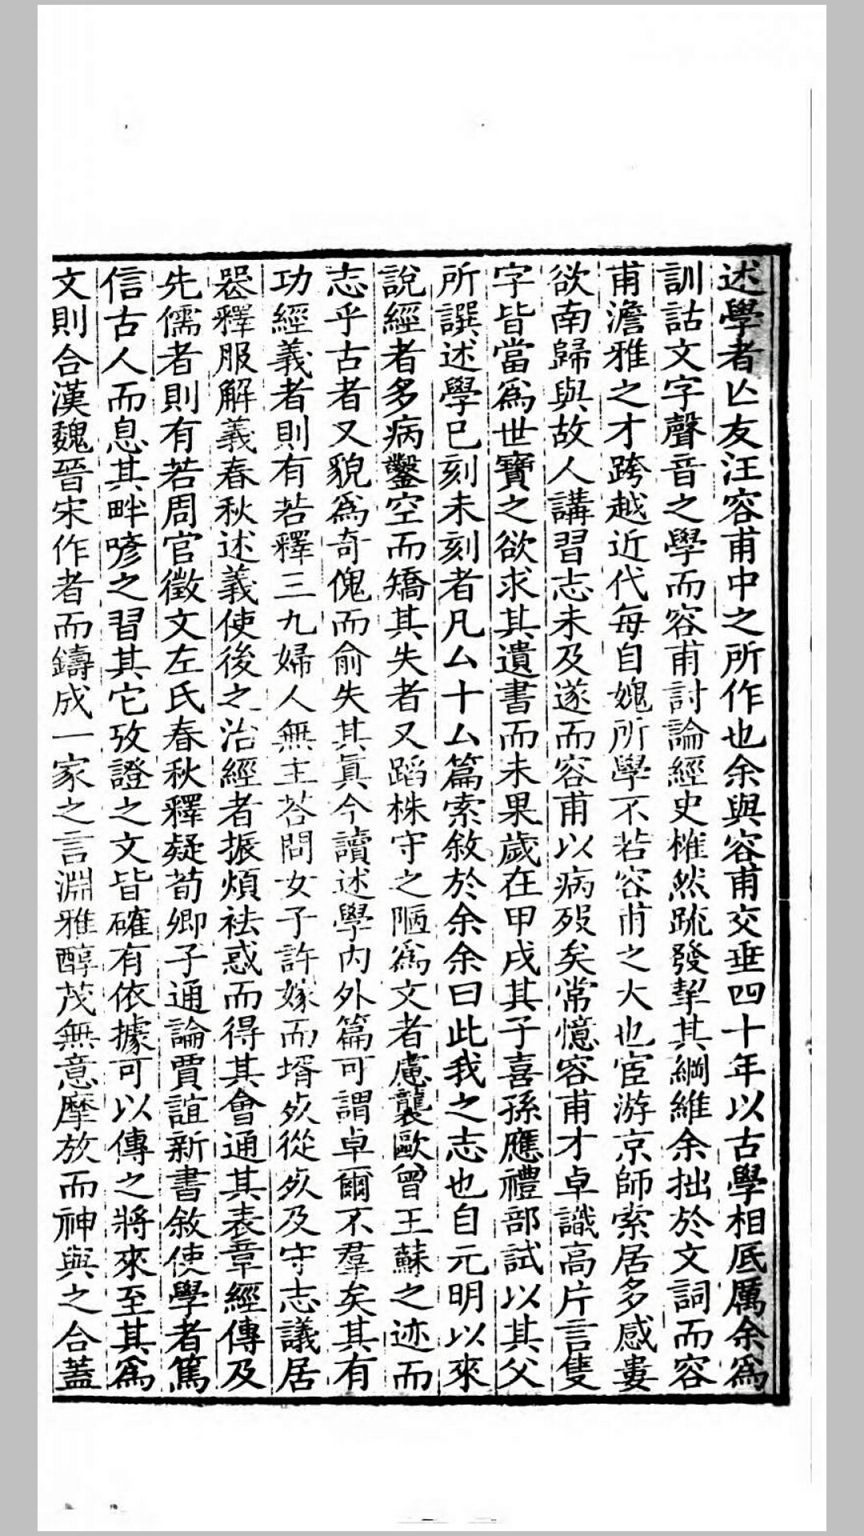 述學者亾友汪容甫中之所作也余與容甫交垂四十年以古學相底厲余爲
訓詁文字聲音之學而容甫討論經史榷然疏發挈其綱維余拙於文詞而容
甫澹雅之才跨越近代每自媿所學不若容甫之大也宦游京師索居多感婁
欲南歸與故人講習志未及遂而容甫以病歿矣常憶容甫才卓識高片言隻
字皆當爲世寶之欲求其遺書而未果歲在甲戌其子喜孫應禮部試以其父
所譔述學已刻未刻者凡厶十厶篇索敘於余余曰此我之志也自元明以來
說經者多病鑿空而矯其失者又蹈株守之陋爲文者慮襲歐曾王蘇之迹而
志乎古者又貌爲奇傀而俞失其真今讀述學內外篇可謂卓爾不羣矣其有
功經義者則有若釋三九婦人無主荅問女子許嫁而壻歿從歿及守志議居
喪釋服解義春秋述義使後之治經者振煩袪惑而得其會通其表章經傳及
先儒者則有若周官徵文左氏春秋釋疑荀卿子通論賈誼新書敘使學者篤
信古人而息其畔喭之習其它攷證之文皆確有依據可以傳之將來至其爲
文則合漢魏晉宋作者而鑄成一家之言淵雅醇茂無意摩放而神與之合蓋